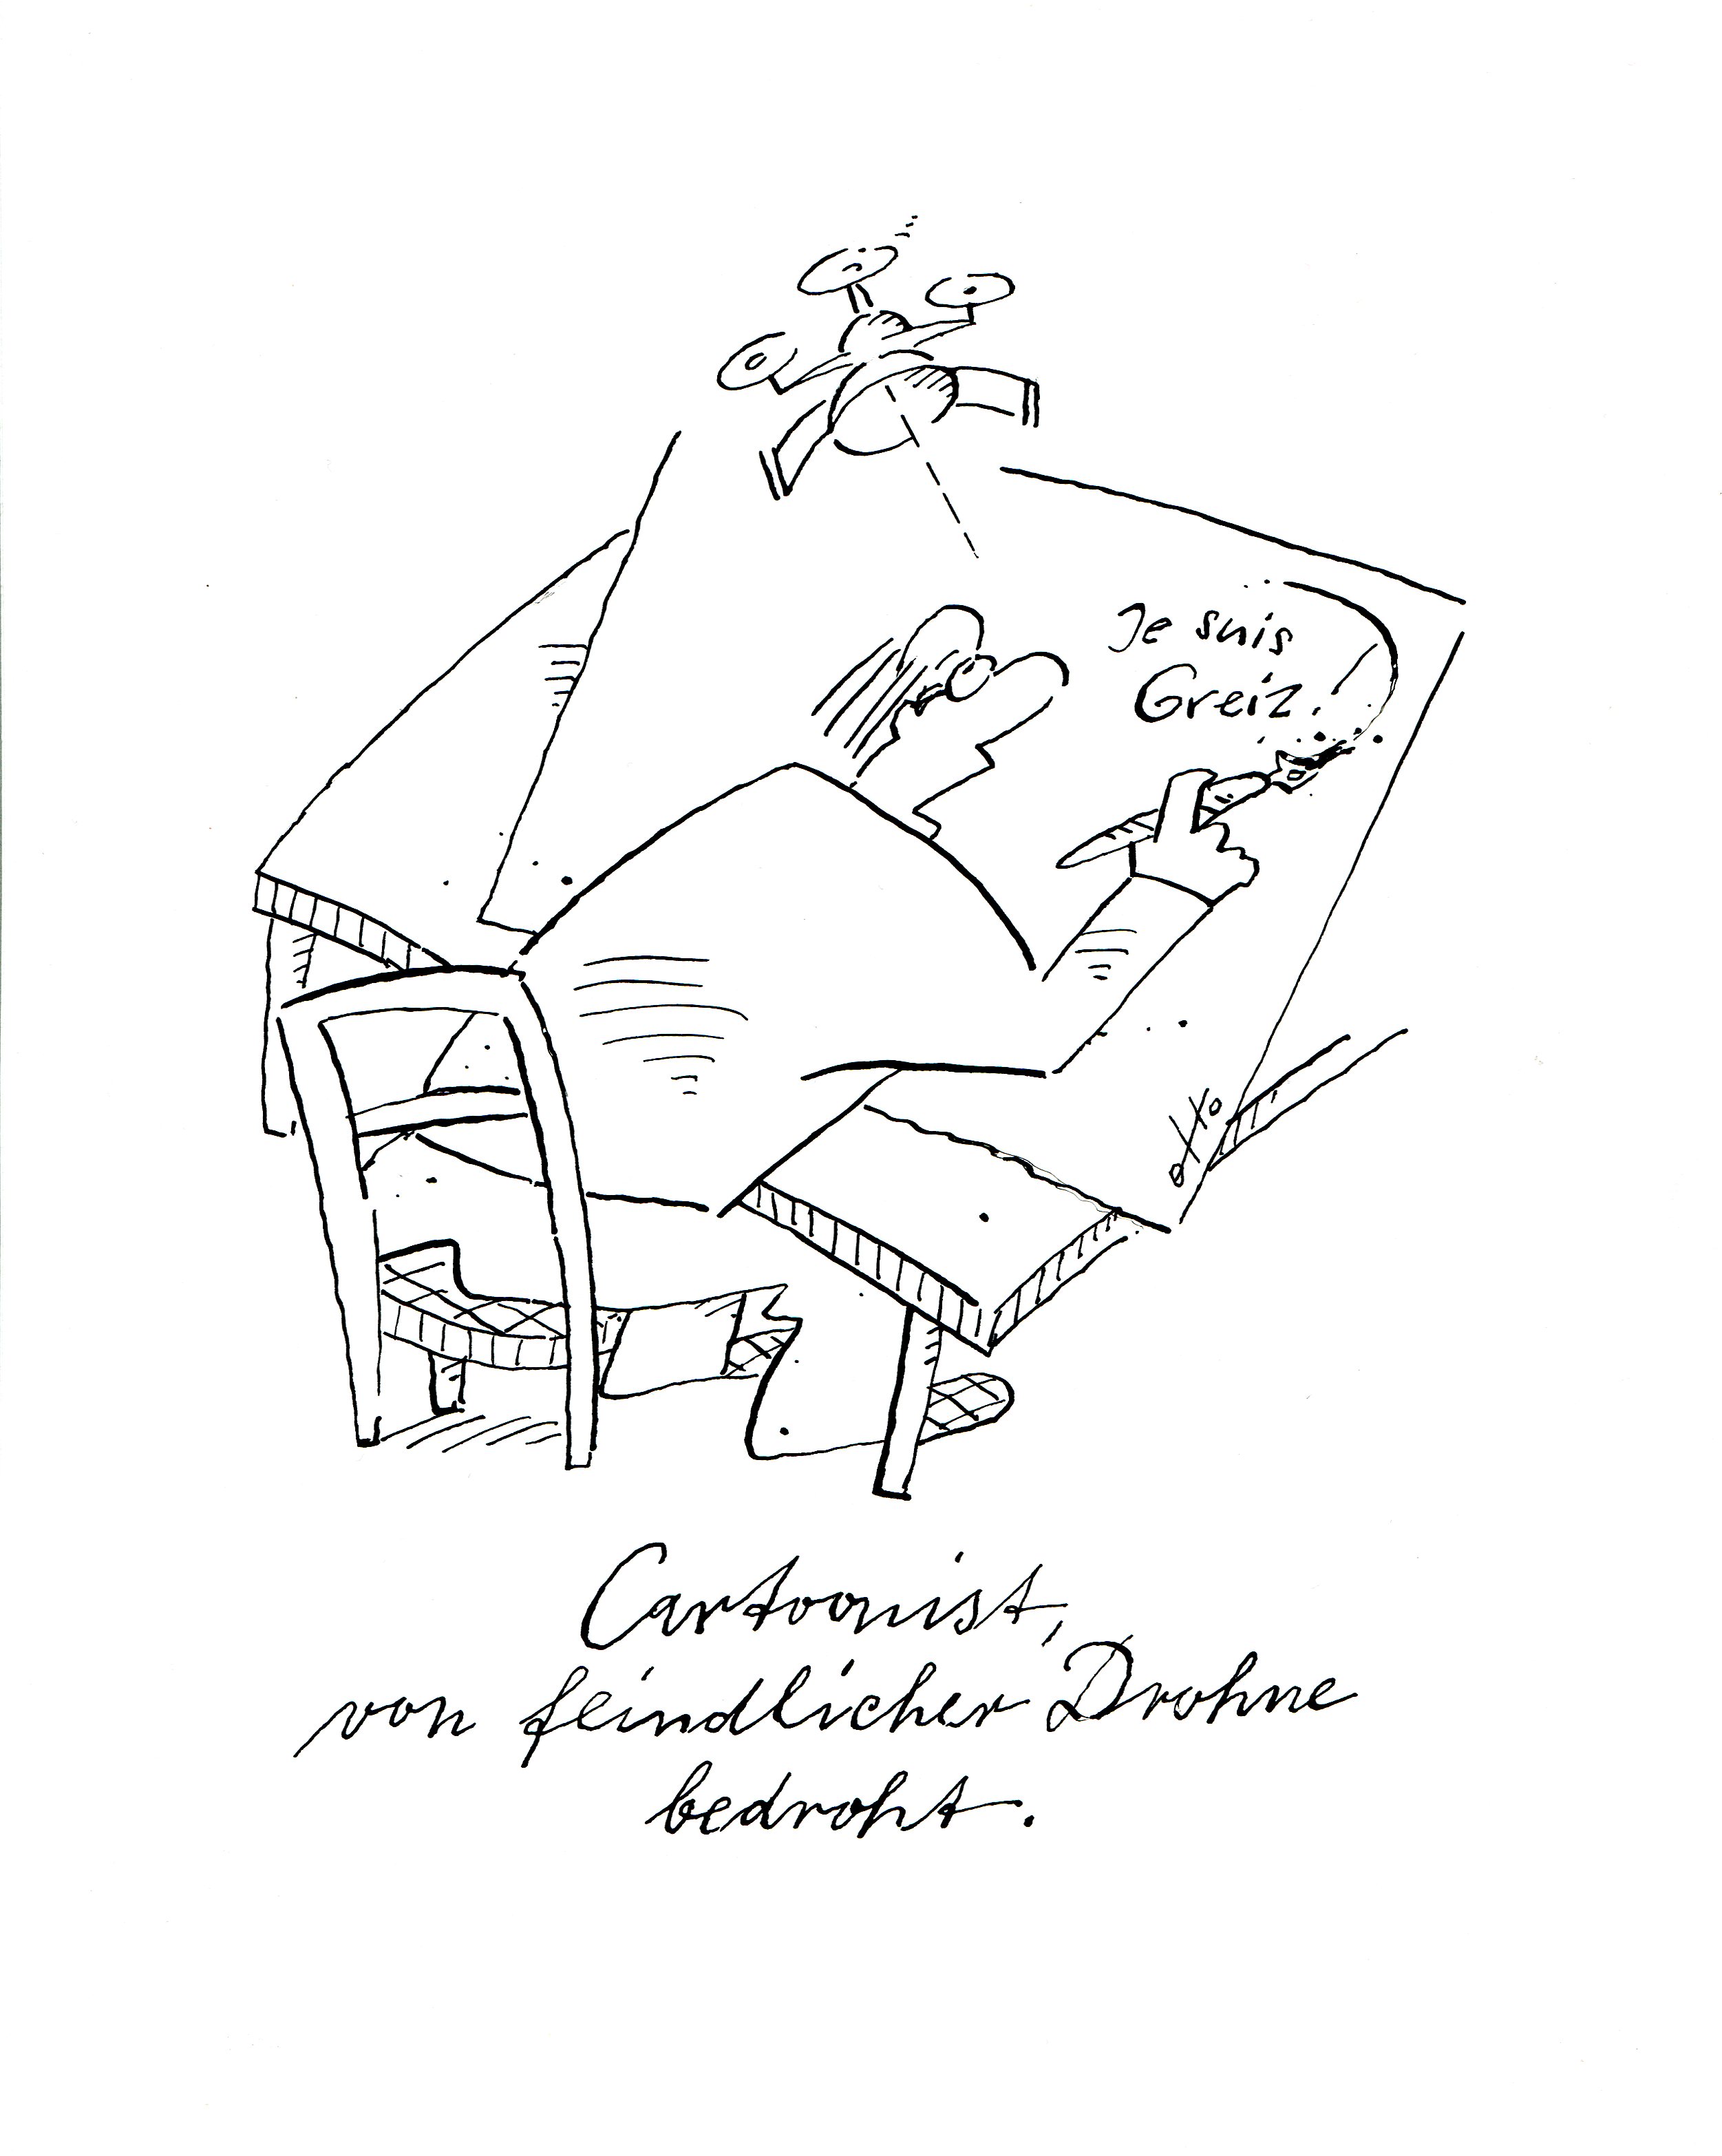 Je suis
Greiz!
Cartoonist,
von feindlicher Drohne
bedroht.